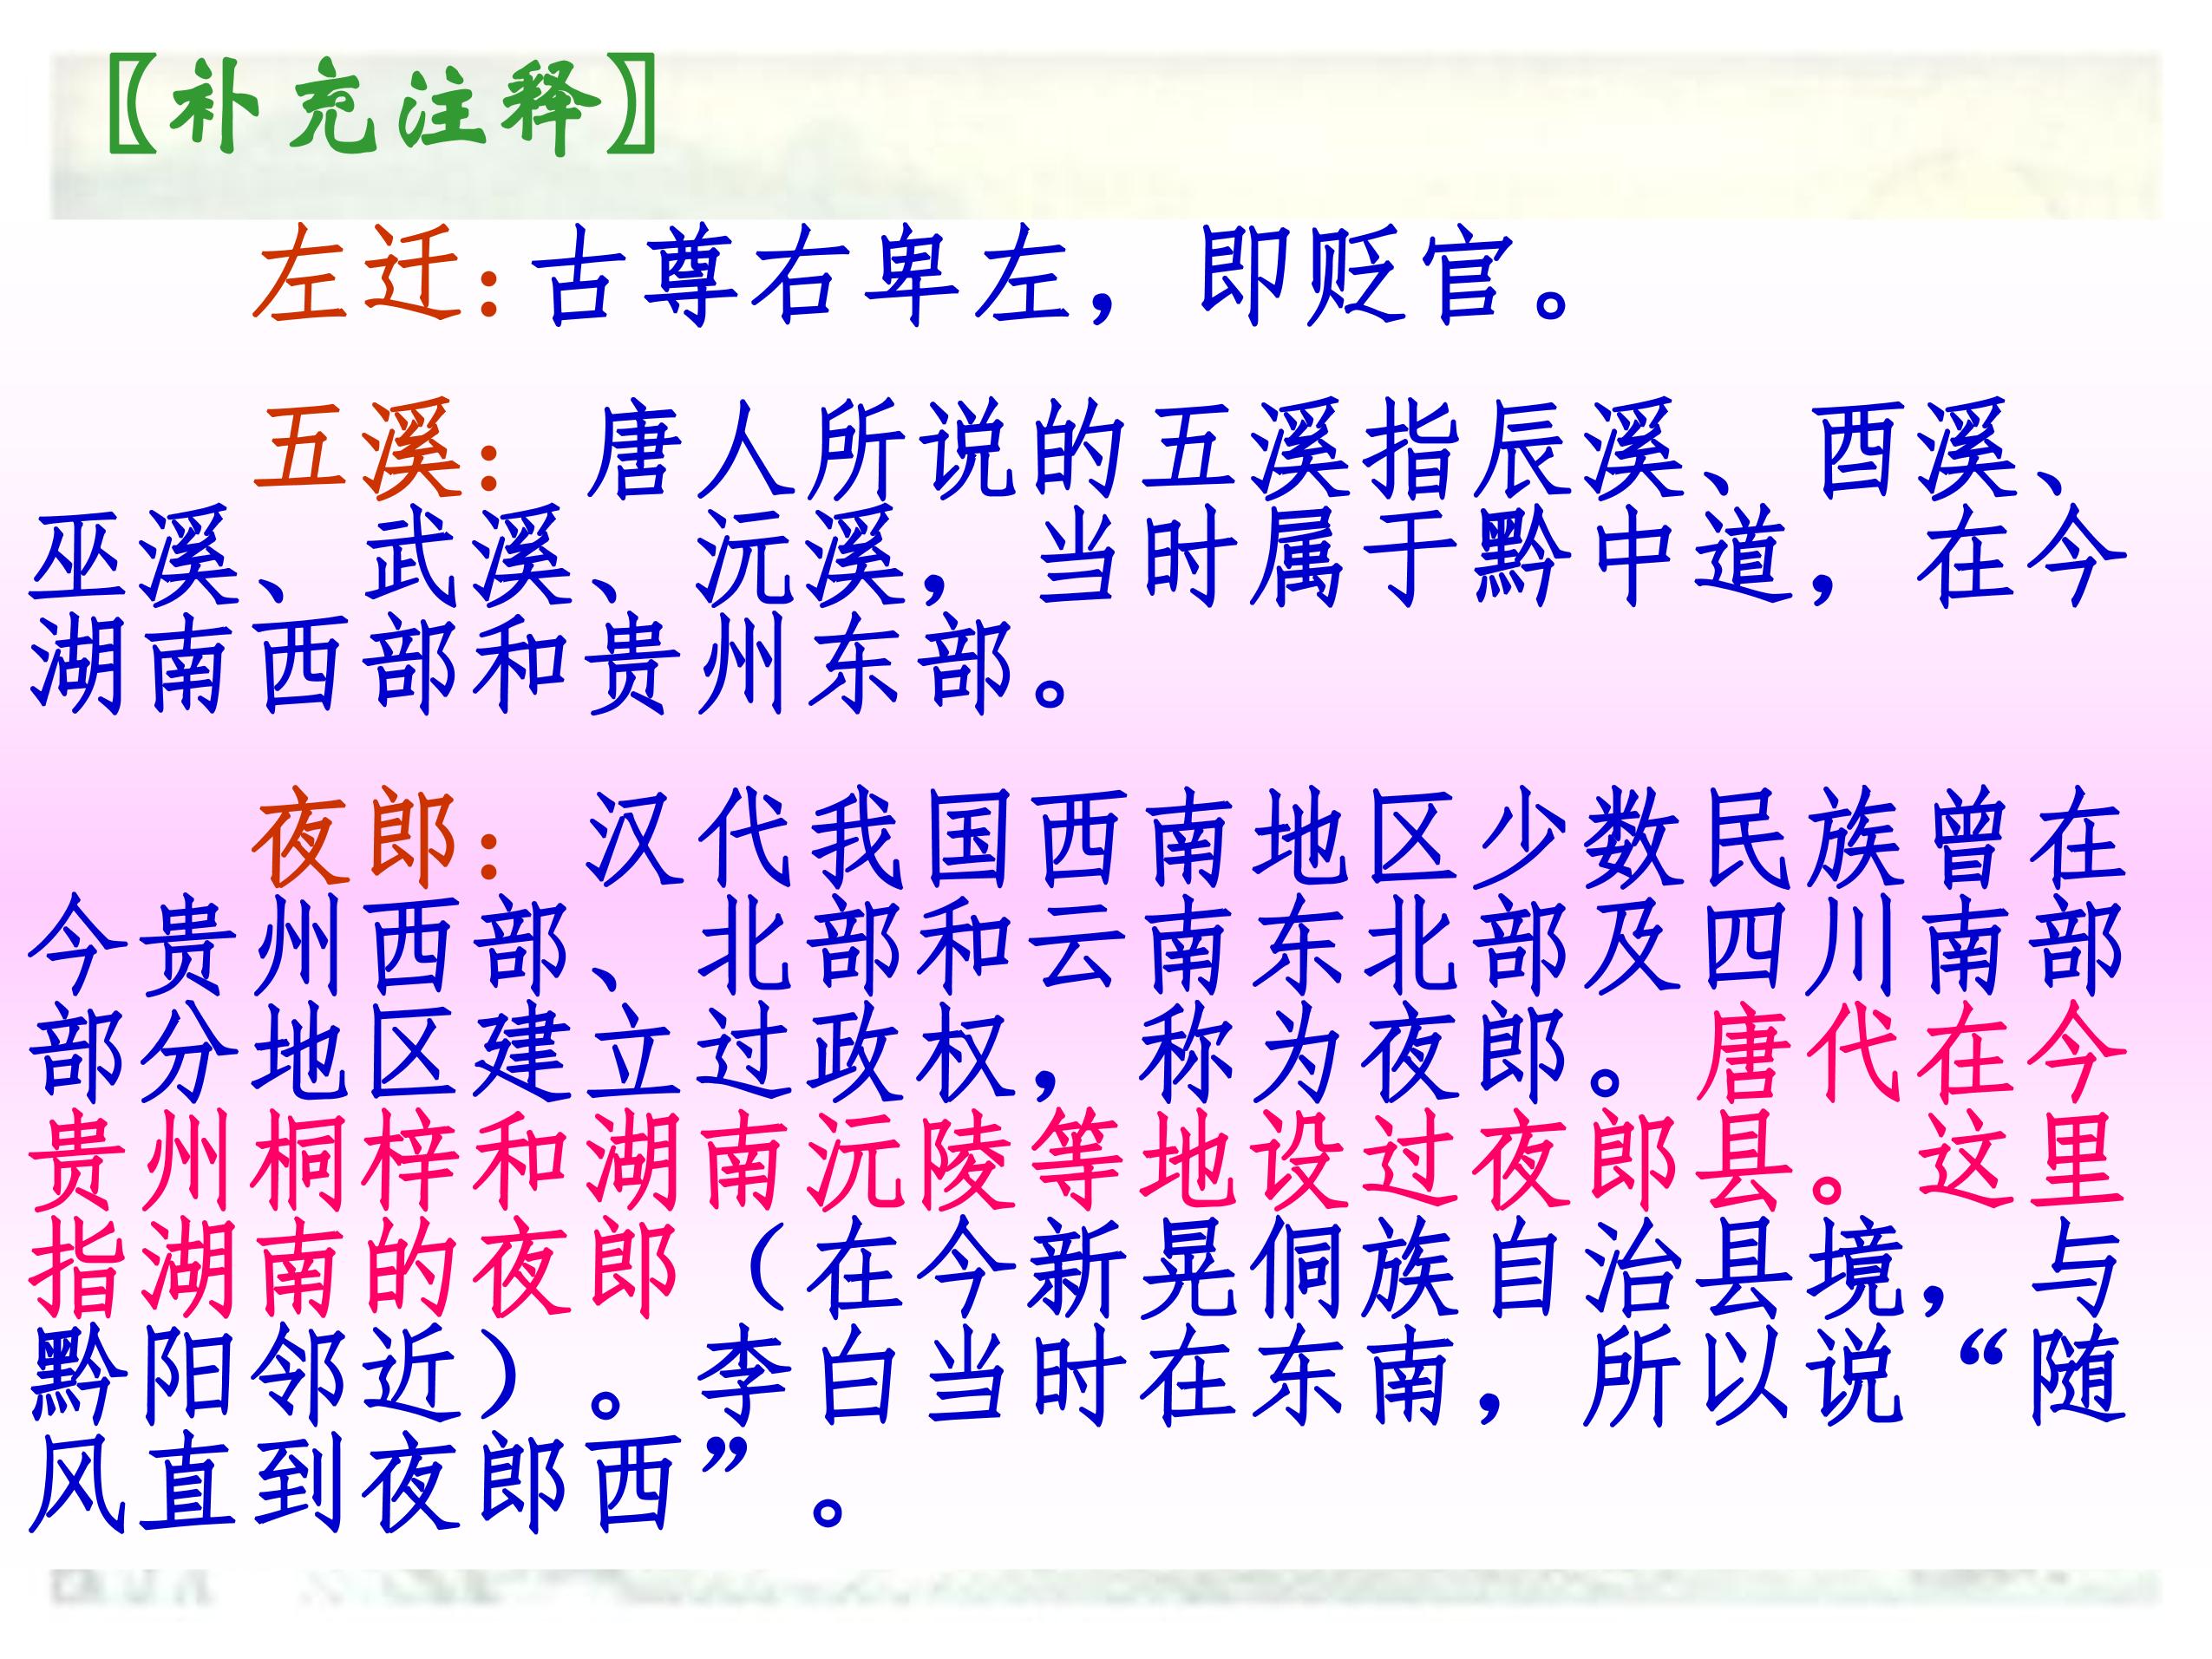 〖补充注释〗
左迁：古尊右卑左，即贬官。
五溪：唐人所说的五溪指辰溪、酉溪、
巫溪、武溪、沅溪，当时属于黔中道，在今
湖南西部和贵州东部。
夜郎：汉代我国西南地区少数民族曾在
今贵州西部、北部和云南东北部及四川南部
部分地区建立过政权，称为夜郎。唐代在今
贵州桐梓和湖南沅陵等地设过夜郎县。这里
指湖南的夜郎（在今新晃侗族自治县境，与
黔阳邻近）。李白当时在东南，所以说“随
风直到夜郎西”。